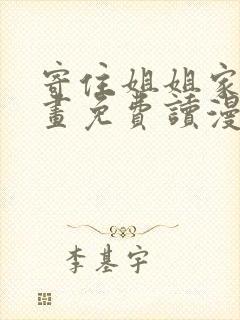 寄住姐姐家
畫免費讀漫
李基宇